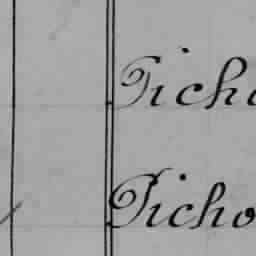 Picho
Picho